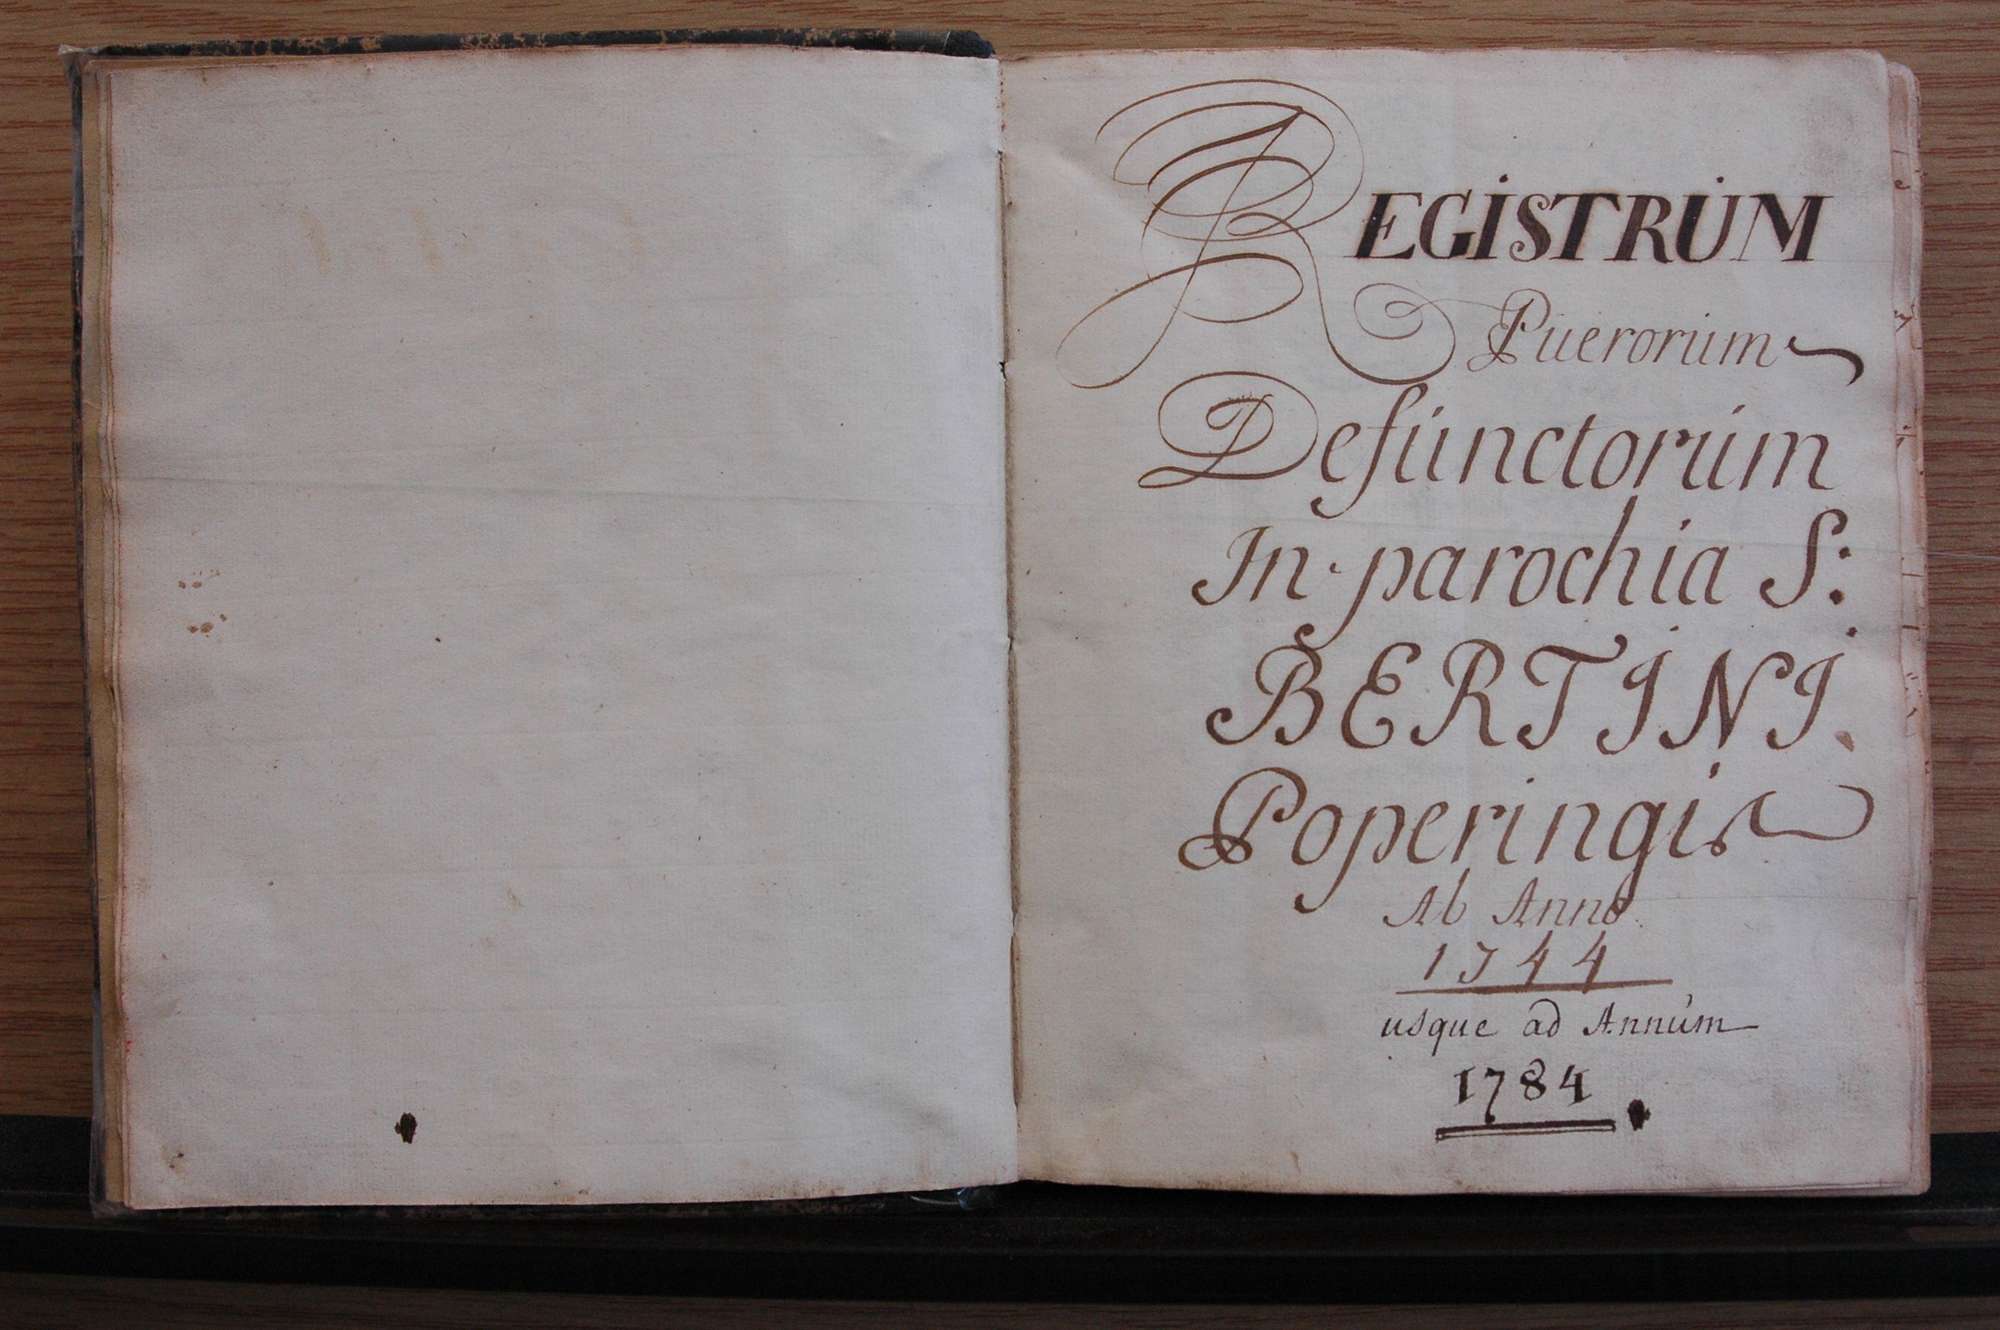 REGISTRUM
Puerorum
Defunctorum
In parochia S:
BERTINI.
Poperingis
Ab Anno
1744
usque ad Annum
1784